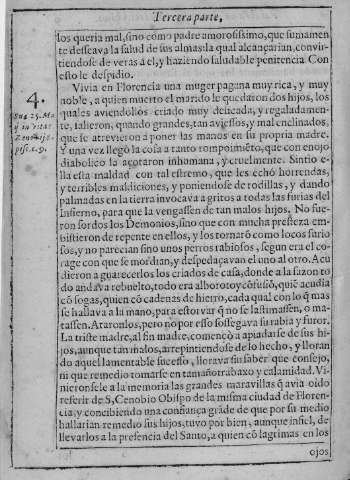 Tercera parte,
los queria mal, sino como padre amorosissimo, que sumamen
te desseava la salud de sus almas: la qual alcançarian, convir-
tiendose de veras á el, y haziendo saludable penitencia. Con
esto le despidio.
Vivia en Florencia una muger pagana muy rica, y muy
noble, a quien muerto el marido le quedaron dos hijos, los
quales aviendolos criado muy delicada, y regaladamen-
te, salieron, quando grandes, tan aviessos, y mal enclinados,
que se atrevieron à poner las manos en su propria madre.
Y una vez llegò la cosa a tanto rompimiẽto, que con enojo
diabolico la açotaron inhumana, y cruelmente. Sintio e-
lla esta maldad con tal estremo, que les echò horrendas,
y terribles maldiciones, y poniendose de rodillas, y dando
palmadas en la tierra invocava a gritos a todas las furias del
Infierno, para que la vengassen de tan malos hijos. No fue-
ron sordos los Demonios, sino que con mucha presteza em-
bistieron de repente en ellos, y los tornarõ como locos furio
sos, y no parecian sino unos perros rabiosos, segun era el co-
rage con que se mordian, y despedaçavan el uno al otro. Acu
dieron a guarecerlos los criados de casa, donde a la sazon to
do andava rebuelto, todo era alboroto y cõfusiõ, quiẽ acudia
cõ sogas, quien cõ cadenas de hierro, cada qual con lo q̃ mas
se hallava a la mano, para estorvar q̃ no se lastimassen, o ma-
tassen. Ataronlos, pero no por esso sossegava su rabia y furor.
La triste madre, al fin madre, començò a apiadarse de sus hi-
jos, aunque tan malos, arrepintiendose de lo hecho, y lloran
do aquel lamentable sucesso, llorava sin saber que consejo,
ni que remedio tomarse en tamaño trabaxo y calamidad. Vi-
nieronsele a la memoria las grandes maravillas q̃ avia oido
referir de S. Cenobio Obispo de la misma ciudad de Floren-
cia, y concibiendo una confiança grãde de que por su medio
hallarian remedio sus hijos, tuvo por bien, aunque infiel, de
llevarlos a la presencia del Santo, a quien cõ lagrimas en los
ojos
4.
Sur. 25. Ma